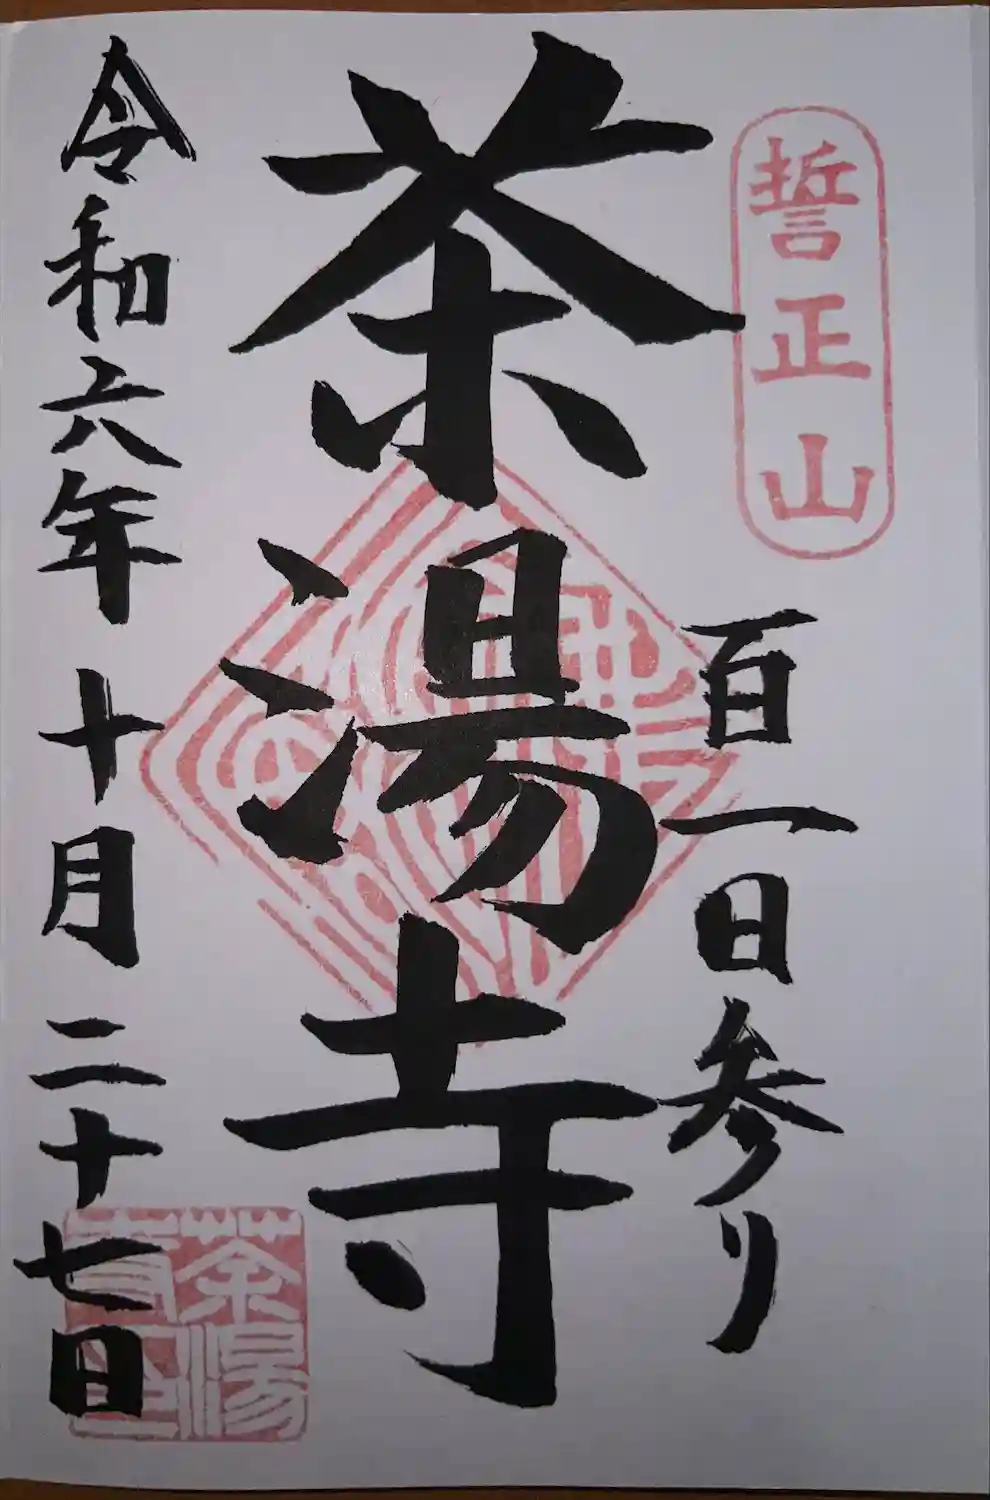 誓正山
百一日参り
茶湯寺
令和六年十月二十七日
茶湯寺印